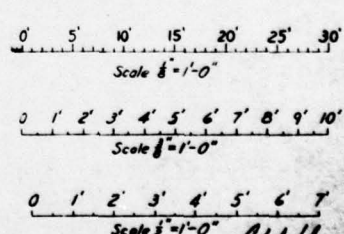 0' 5' 10' 15' 20' 25' 30'
Scale 1/8" = 1'-0"
0 1' 2' 3' 4' 5' 6' 7' 8' 9' 10'
Scale 3/8" = 1'-0"
0 1' 2' 3' 4' 5' 6' 7'
Scale 1/2" = 1'-0"